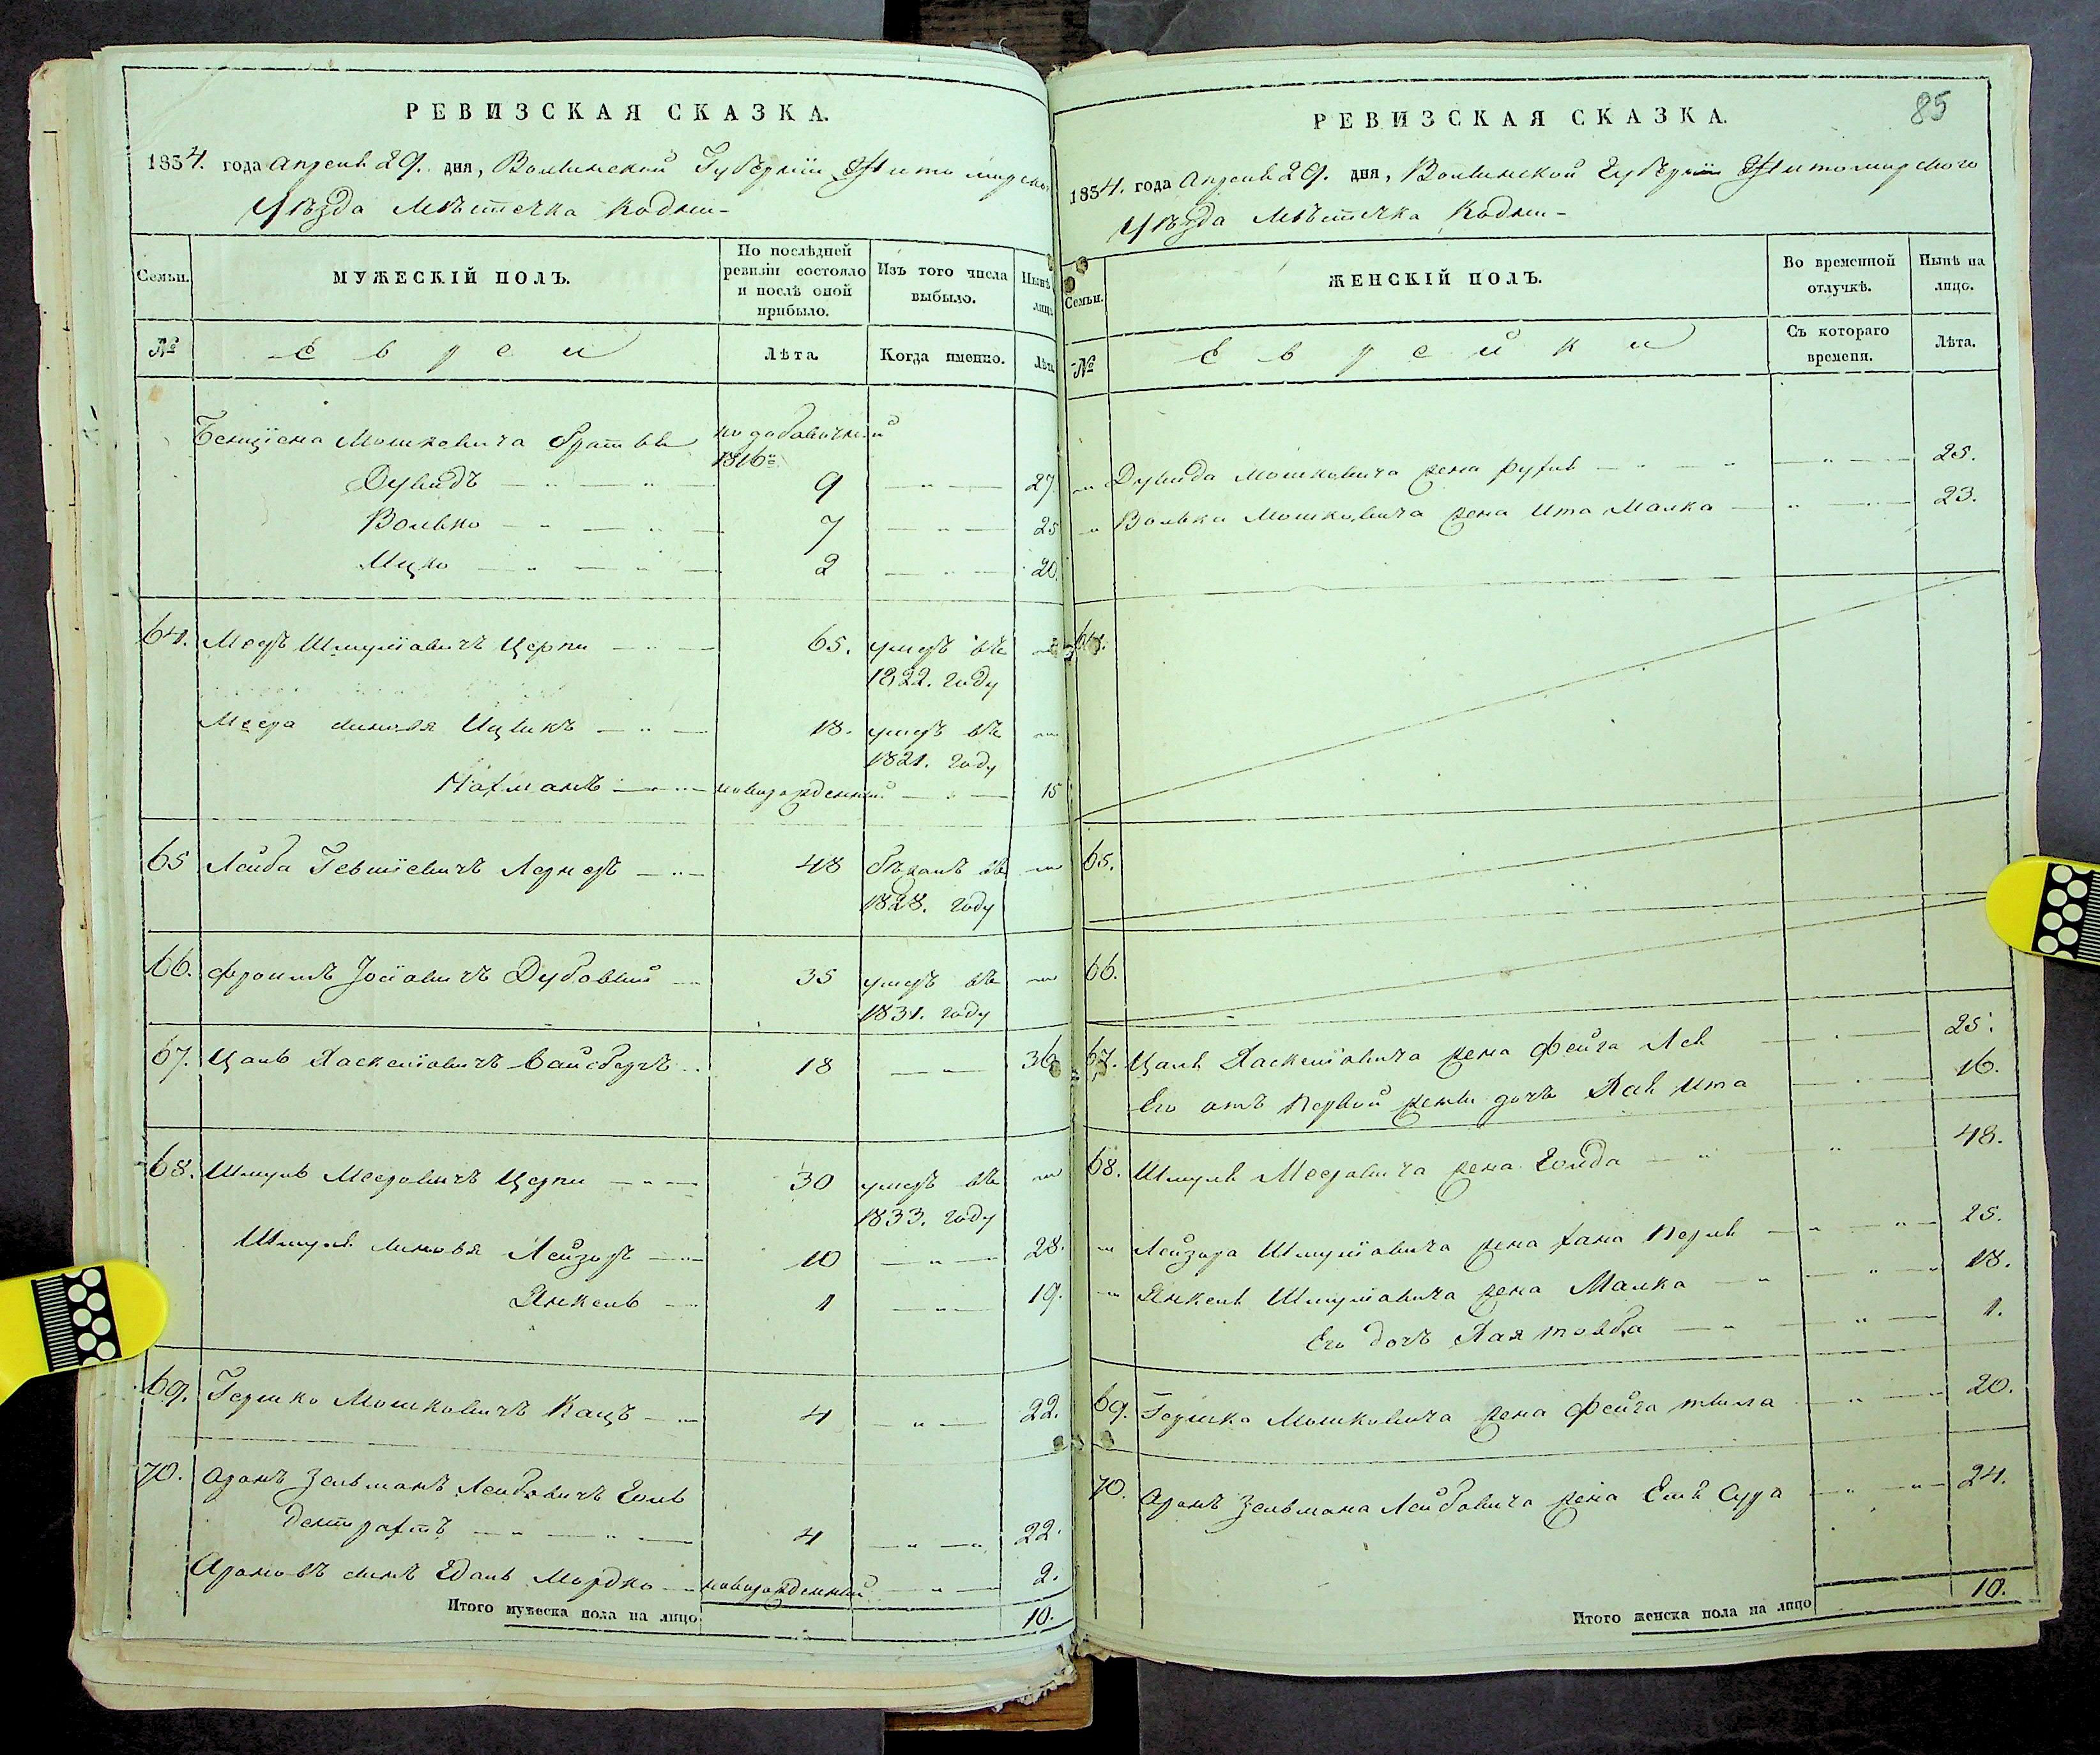 РЕВИЗСКАЯ СКАЗКА.
1834. года Апреля 29. дня, Волынской Губернии Житомирского
Уѣзда Мѣстечка Кодни-
Семьи.
МУЖЕСКІЙ ПОЛЪ.
По послѣдней ревизіи состояло и послѣ оной прибыло.
Изъ того числа выбыло.
Нынѣ лицо.
№
Евреи
Лѣта.
Когда именно.
Лѣта
Мошковича братья
1816
Дувидъ 9 27
Волько 7 25
Ицко 2 20.
64. Мееръ Шмулiовичъ Церпи 65. умеръ въ
1822. году
Меера сыновя Ицыкъ 18. умеръ въ
1821. году
Нахманъ новорожденный 15
65 Лейба Гевшiевичъ Лернеръ 48 бѣжалъ въ
1828. году
66. Фроимъ Дубовый 35 умеръ въ
1831. году
67. Цаль Хаскелiовичъ Вайсберъ 18 36
68. Шмуль Мееровичъ Церпи 30 умеръ въ
1833. году
Шмуля сыновя Лейзоръ 10 28.
Янкель 1 19.
69. Гершко Мошковичъ Кацъ 4 22.
70. Аронъ Зельманъ Лейбовичъ Голь
дентрахтъ 4 22.
Ароновъ сынъ Мордко новорожденный 2.
Итого мужеска пола на лицо 10.
85
РЕВИЗСКАЯ СКАЗКА.
1834. года Апреля 29. дня, Волынской Губернии Житомирского
Уѣзда Мѣстечка Кодни-
Семьи.
ЖЕНСКІЙ ПОЛЪ.
Во временной отлучкѣ.
Нынѣ на лицо.
№
Еврейки
Съ котораго времени.
Лѣта.
Дувида Мошковича жена Рухля 25.
Волька Мошковича жена Ита Малка 23.
64.
65.
66.
67. Цаля Хаскелiовича жена Фейга Лея 25.
Его отъ первой жены дочь Хая Ита 16.
68. Шмуля Мееровича жена Голда 48.
Лейзора Шмулiовича жена Хана Перля 25.
Янкеля Шмулiовича жена Малка 18.
Его дочь Хая Товба 1.
69. Гершка Мошковича жена Фейга 20.
70. Аронъ Зельмана Лейбовича жена Сура 24.
Итого женска пола на лицо 10.